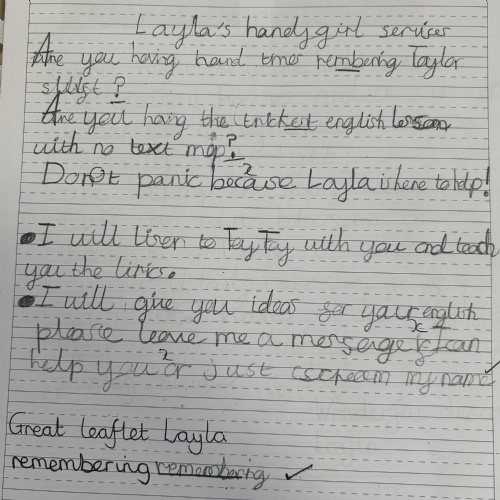 Layla's handygirl services
Are you having hard times rembering Taylor
swift?
Are you having the trickest english lesson
with no text map?
Don't panic because Layla is here to help!
I will lisen to TayTay with you and teach
you the lirics.
I will give you ideas for your english
please leave me a message if I can
help you or just scream my name
Great leaflet Layla
remembering remembering ✓